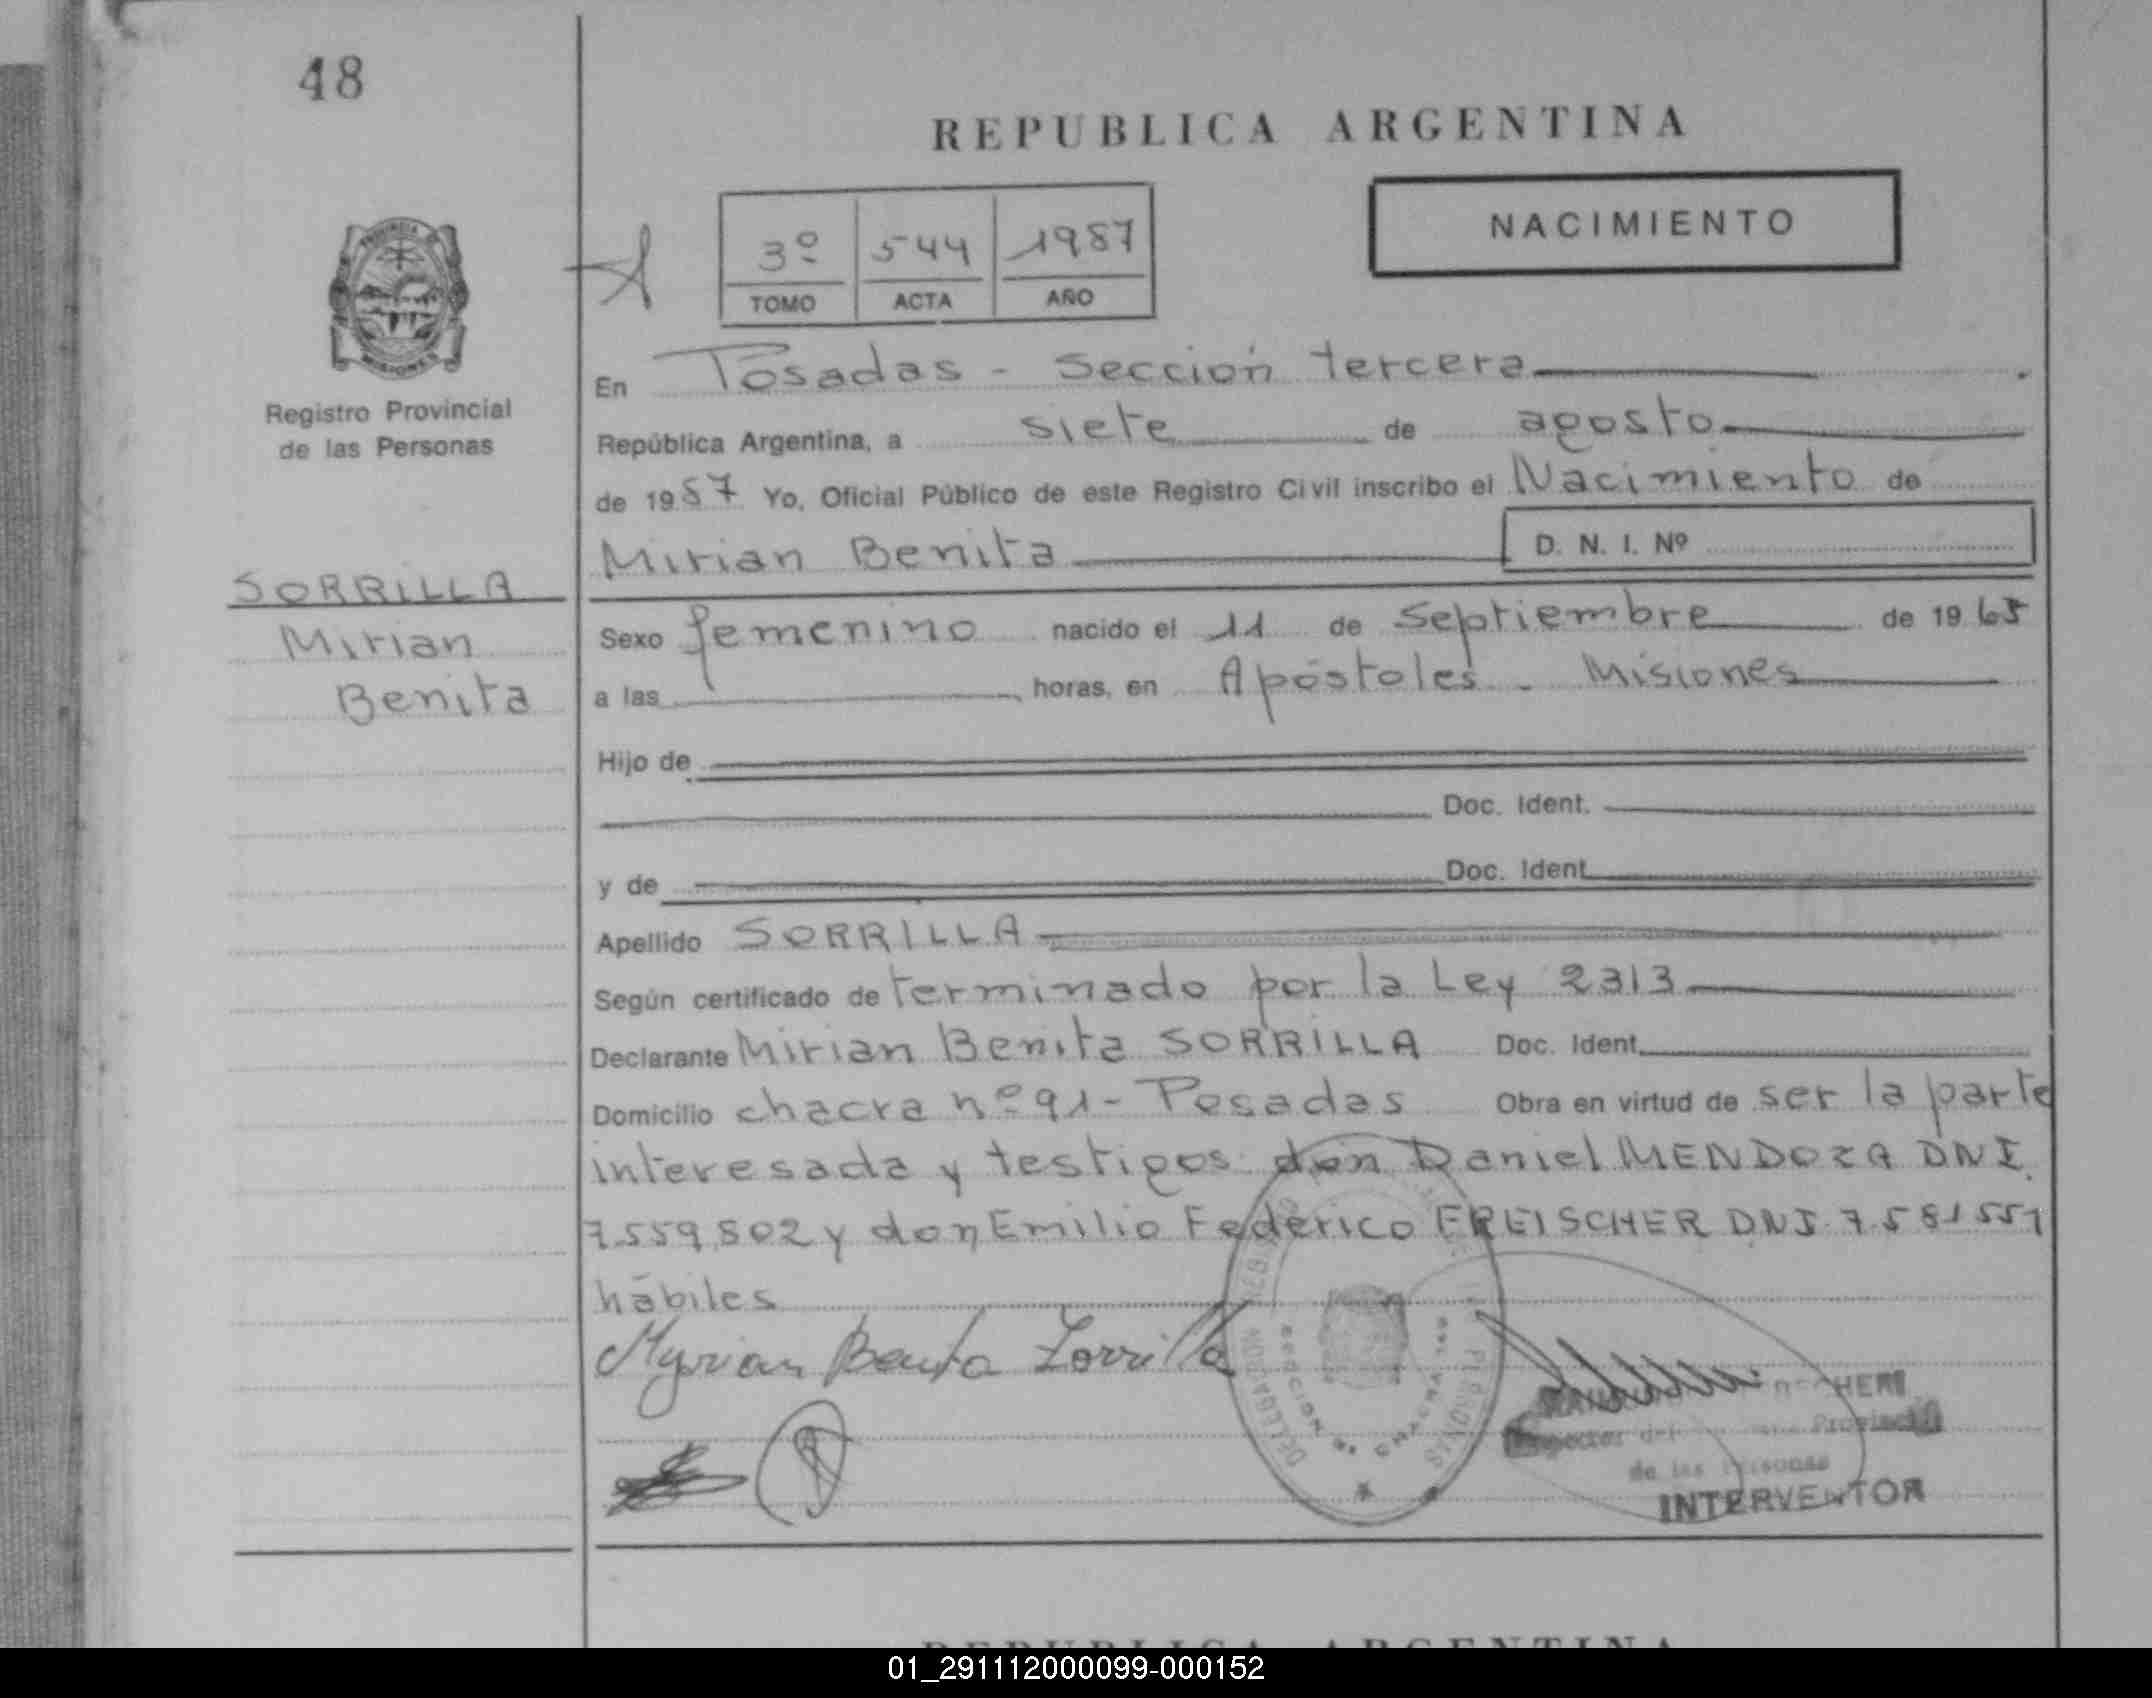 48
REPUBLICA ARGENTINA
NACIMIENTO
3º 544 1987
TOMO ACTA AÑO
Registro Provincial
de las Personas
SORRILLA
Mirian
Benita
En Posadas - Sección tercera
República Argentina, a siete de agosto
de 1987 Yo, Oficial Público de este Registro Civil inscribo el Nacimiento de
Mirian Benita D. N. I. Nº
Sexo femenino nacido el 11 de Septiembre de 1965
a las horas, en Apóstoles - Misiones
Hijo de
Doc. Ident.
y de Doc. Ident
Apellido SORRILLA
Según certificado de terminado por la Ley 2313
Declarante Mirian Benita SORRILLA Doc. Ident.
Domicilio chacra nº 91 - Posadas Obra en virtud de ser la parte
interesada y testigos don Daniel MENDOZA DNI
7.559.802 y don Emilio Federico FREISCHER DNI 7.581.551
hábiles
Myrian Benita Zorrilla
de las Personas
INTERVENTOR
REPUBLICA ARGENTINA
01_291112000099-000152